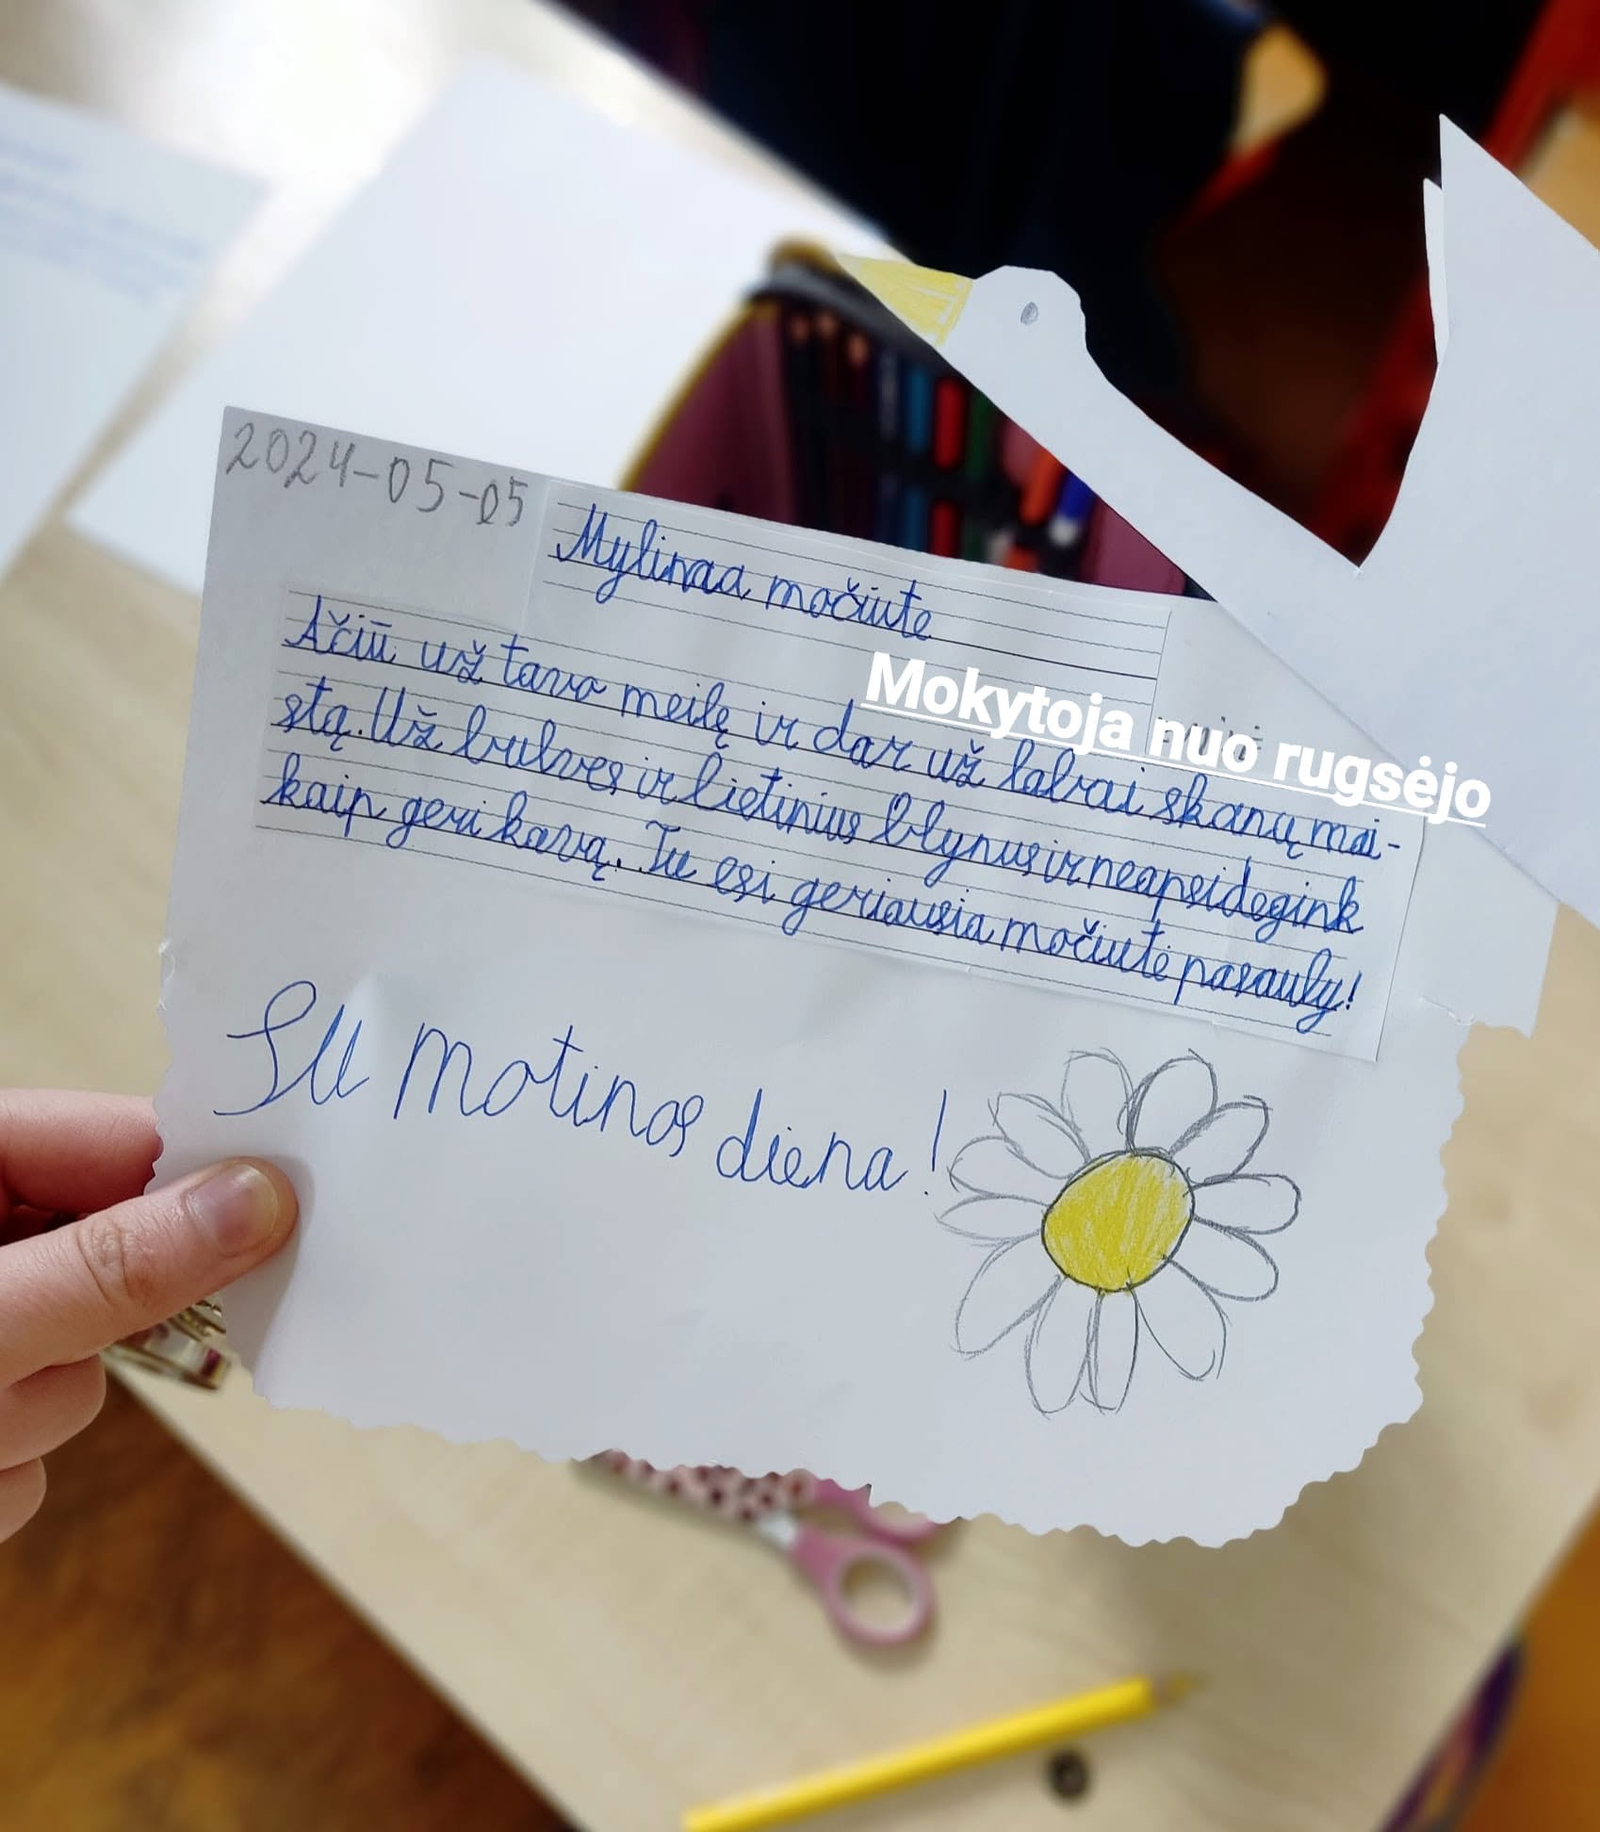 2024-05-05
Mylimaa močiute
Ačiū už tavo meilę ir dar už labai skaną mai-
stą. Už bulves ir lietinius blynus ir neapsidegink
kaip geri kavą. Tu esi geriausia močiutė pasauly!
Su motinos diena!
Mokytoja nuo rugsėjo